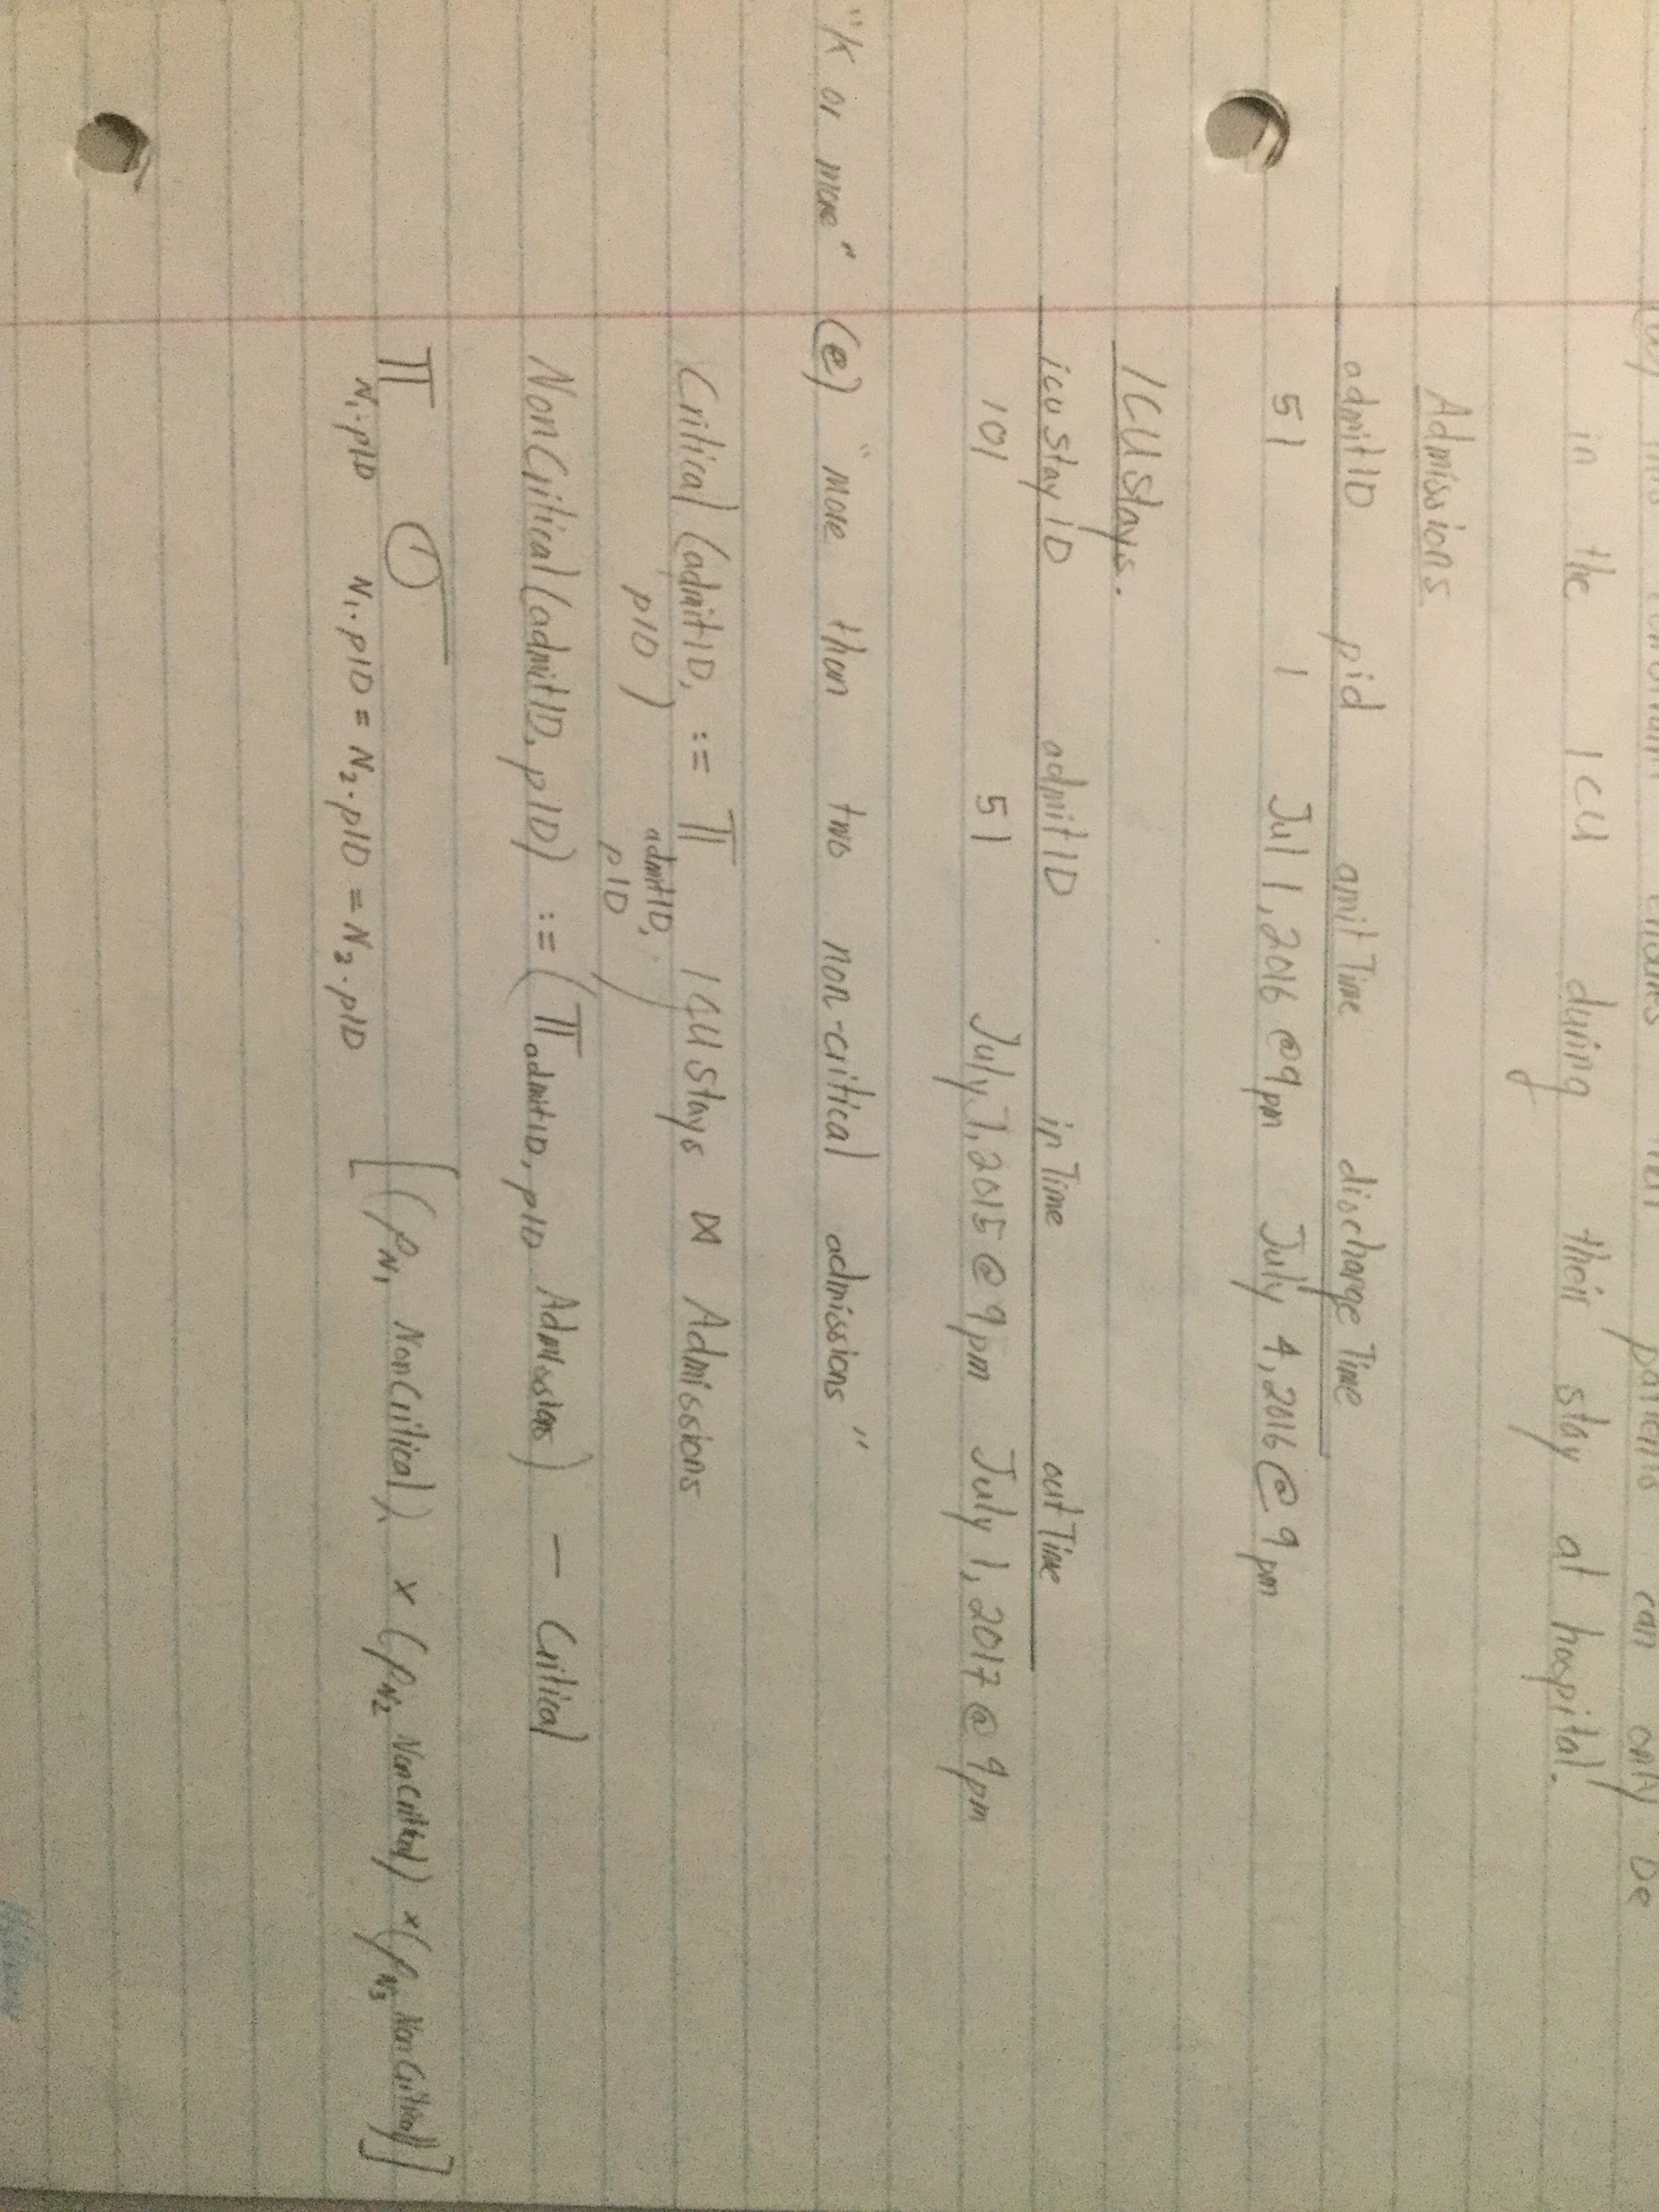 patients can only be
in the ICU during their stay at hospital.
Admissions
admitID pid amitTime dischargeTime
51 1 Jul 1, 2016 @9pm July 4, 2016 @ 9pm
ICUStays.
icuStayID admitID inTime outTime
101 51 July 1, 2015 @ 9pm July 1, 2017 @ 9pm
"K or more" (e) "more than two non-critical admissions"
Critical (admitID, := Π ICUStays ⋈ Admissions
pID) admitID,
pID
NonCritical (admitID, pID) := (Π admitID, pID Admissions) − Critical
Π σ [(ρN1 NonCritical) × (ρN2 NonCritical) × (ρN3 NonCritical)]
N1.pID N1.pID = N2.pID = N3.pID